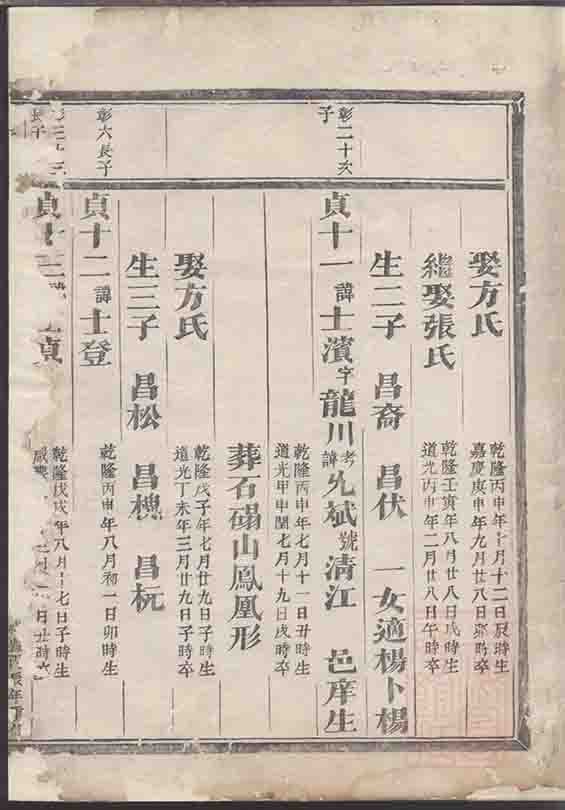 娶方氏
乾隆丙申年七月十二日辰時生
嘉慶庚申年九月廿八日卯時卒
繼娶張氏
乾隆壬寅年八月廿八日戌時生
道光丙申年二月廿八日午時卒
生二子 昌裔 昌伏 一女適楊卜楊
彰二十六
子
貞十一諱士濱字龍川考諱允斌號清江 邑庠生
乾隆丙申年七月十一日丑時生
道光甲申閏七月十九日戌時卒
葬石碣山鳳凰形
娶方氏
乾隆戊子年七月廿九日子時生
道光丁未年三月廿九日子時卒
生三子 昌松 昌槐 昌杬
彰六長子
貞十二諱士登
乾隆丙申年八月初一日卯時生
長子
貞十三
乾隆戊戌年八月十七日子時生